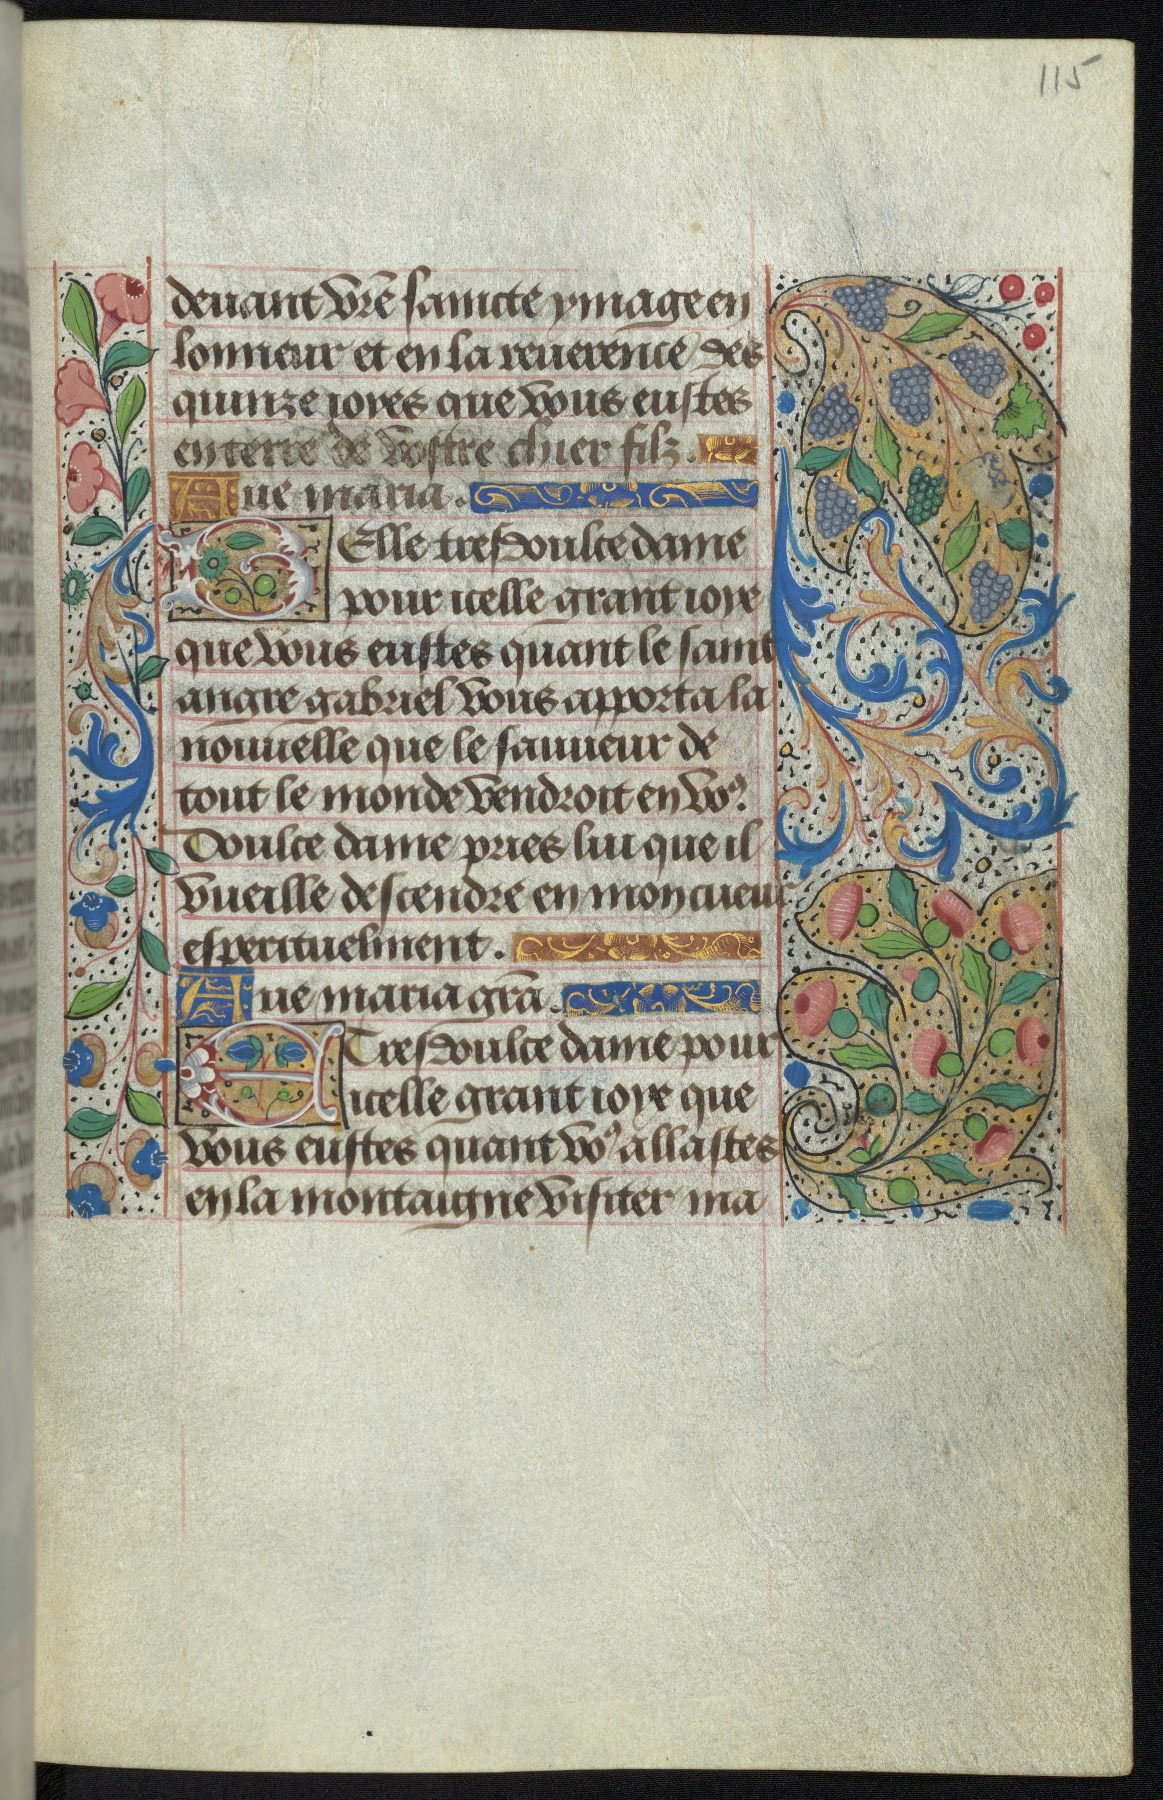 115
deuant vr̃e saincte ymage en
lonneur et en la reuerence des
quinze ioyes que vous eustes
en terre de vostre chier filz.
Aue maria.
BElle tresdoulce dame
pour icelle grant ioye
que vous eustes quant le saint
angre gabriel vous apporta la
nouuelle que le sauueur de
tout le monde vendroit en voꝰ.
Doulce dame pries lui que il
vueille descendre en mon cueur
esperituelment.
Aue maria gr̃a.
ETresdoulce dame pour
icelle grant ioye que
vous eustes quant voꝰ allastes
en la montaigne visiter ma